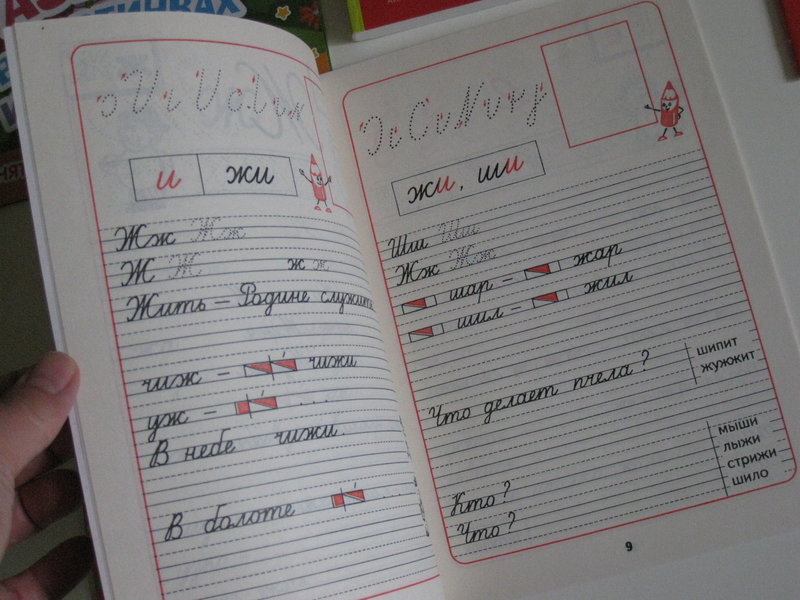 и жи
Жж Жж
Ж Ж ж ж
Жить – Родине служить
чиж – чижи
уж – ...
В небе чижи.
В болоте ....
жи, ши
Шш Шш
Жж Жж
шар – жар
шил – жил
Что делает пчела?
шипит
жужжит
Кто?
Что?
мыши
лыжи
стрижи
шило
9